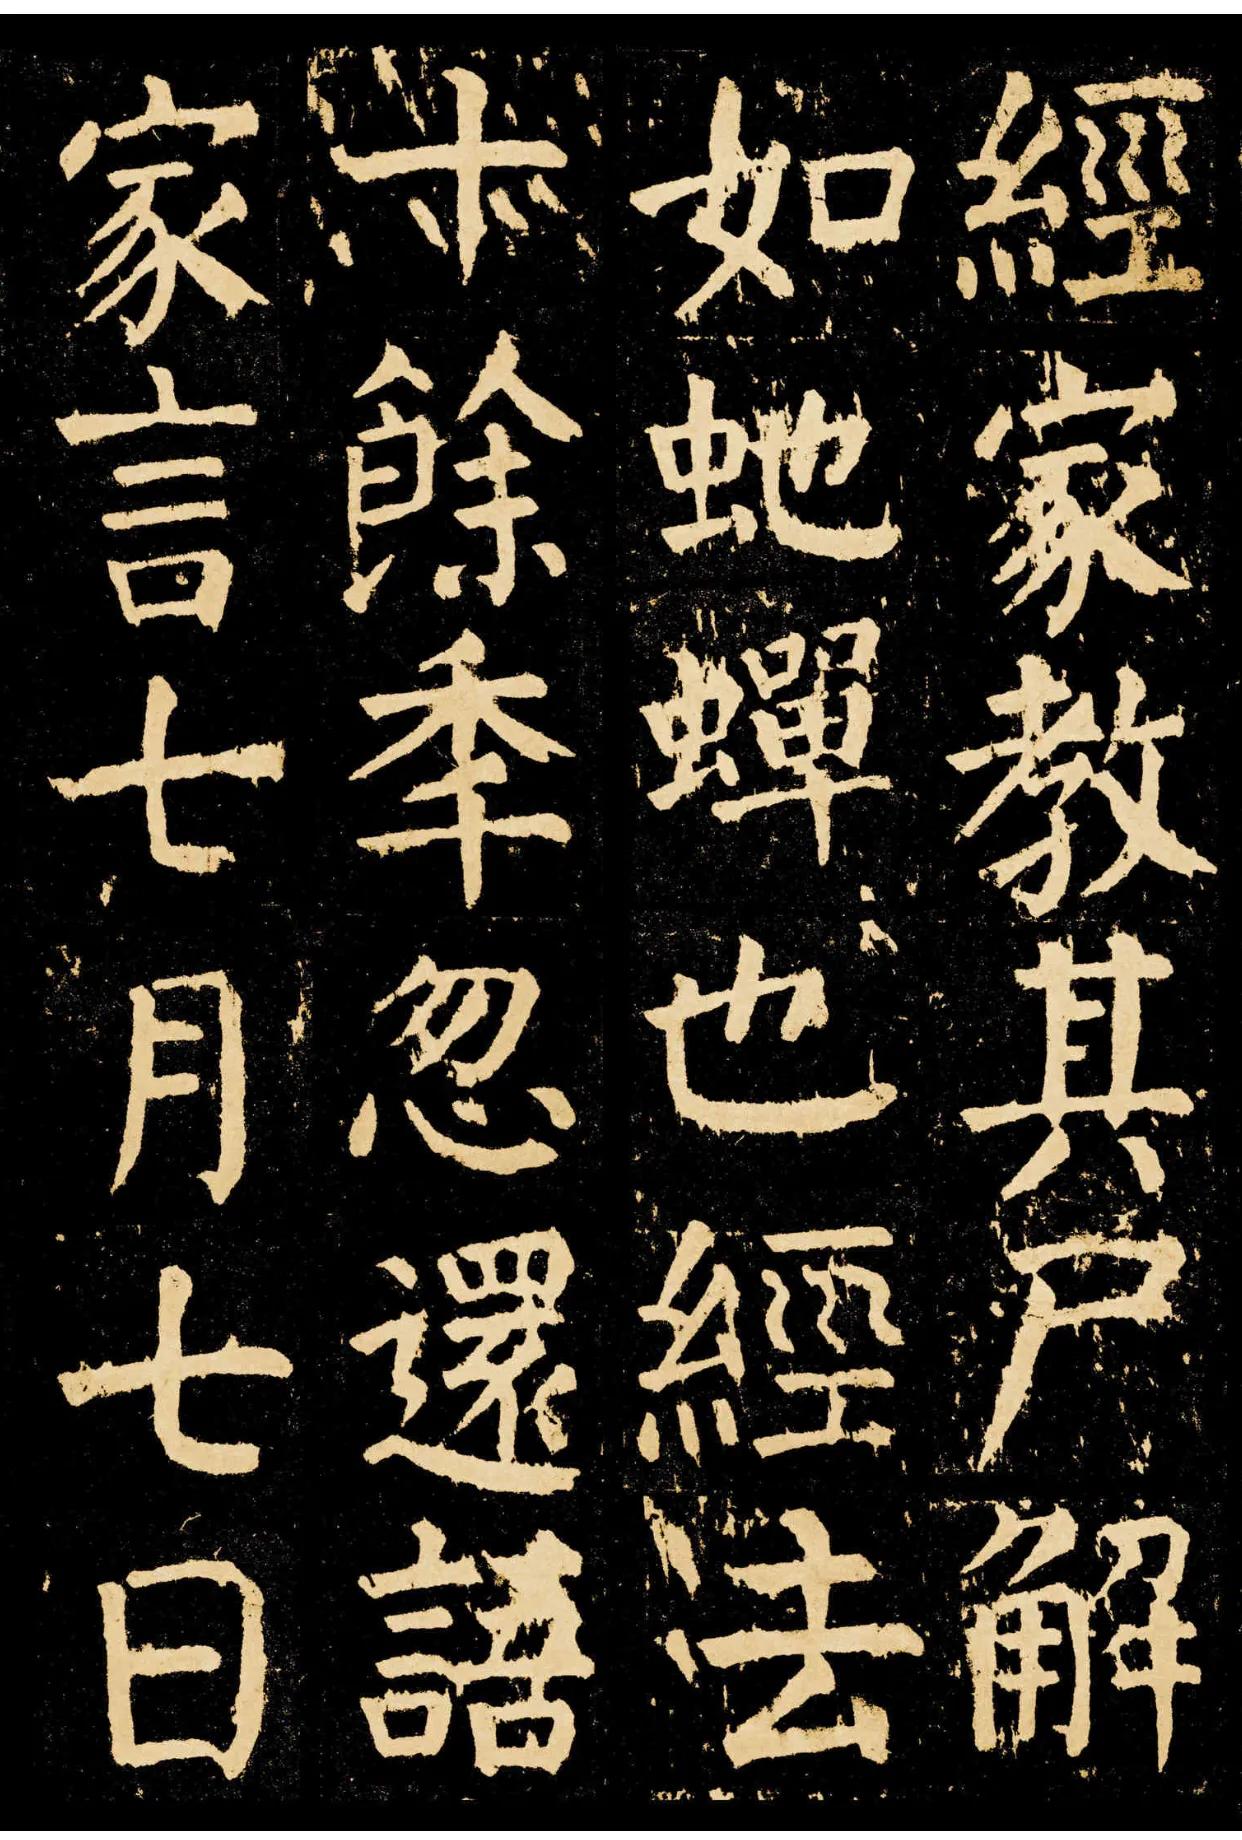 經家教其尸解
如虵蟬也經去
十餘秊忽還語
家言七月七日